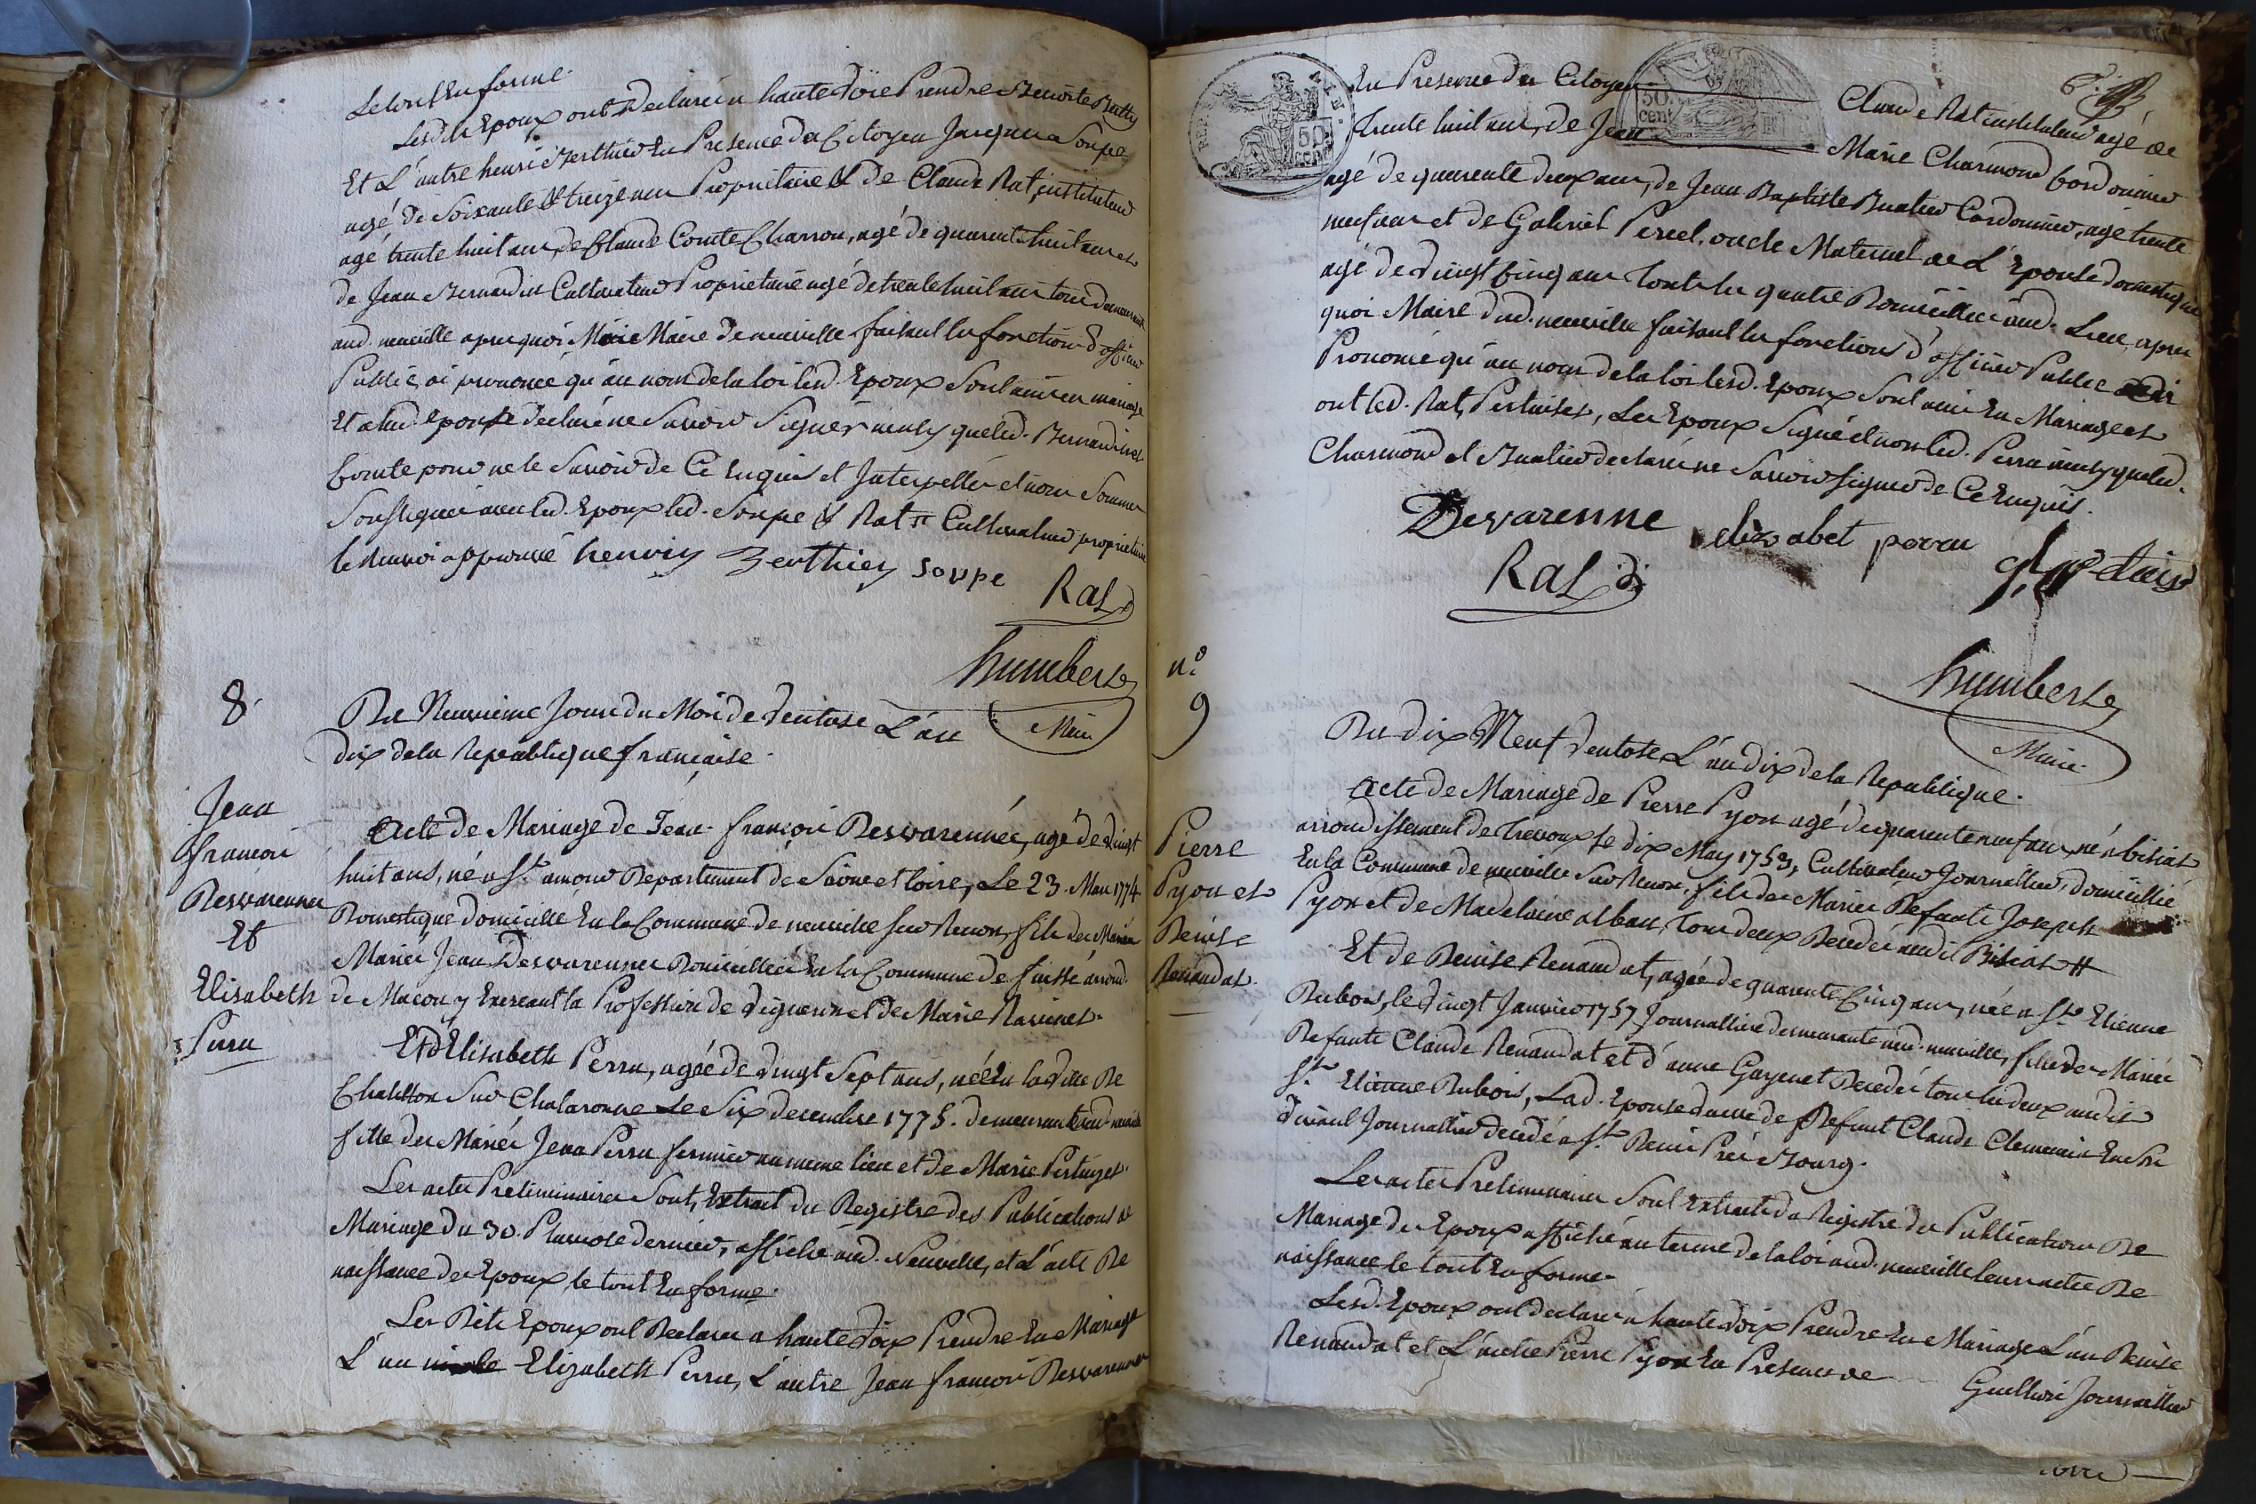 Le tout En forme.
Lesdits Epoux ont Declaré a haute Voie Prendre Benoite Bailly
Et L'autre henri Berthier En Presence du Citoyen Jacques Soupe
agé De Soixante & treize ans Proprietaire & de Claude Rat instituteur
agé trente huit ans, de Claude Comte Charron, agé de quarente huit ans et
de Jean Bernardin Cultivateur Proprietaire agé de trente huit ans tous demeurant
aud. neuville apres quoi Maire De neuville faisant les fonctions d'officier
Public ai prononcé qu'au nom de la loi lesd. Epoux Sont unis en mariage
Et a lad. epouse declaré ne Savoir Signer ainsy que led. Bernardin et
Comte pour ne le Savoir de Ce Enquis et Interpellés et nous Sommes
Soussignés avec led. Epoux led. Soupe & Rat # Cultivateur proprietaire
le Renvoi approuvé henriy Berthier Soupe
Rat
humbert
Maire
8.
Du Neuvieme Jour du Mois de Ventose L'an
dix de la Republique française.
Jean
françois
Desvarennes
Et
Elisabeth
Perru
Acte de Mariage de Jean-françois Desvarennes, agé de Vingt
huit ans, né a St. amour Departement de Saone et loire, Le 23. Mars 1774
Domestique domicillié En la Commune de neuville sur Renon, fils des Mariés
Mariés Jean Desvarennes Domicilliés En la Commune de fuissé arrond.
de Macon y Exercant la Profession de Vigneron et de Marie Ravinet.
Et d'Elisabeth Perru, agée de Vingt Sept ans, née En la Ville De
Chatillon Sur Chalaronne Le Six decembre 1775. demeurante aud. neuville
fille des Mariés Jean Perru fermier au meme lieu et de Marie Pertuizet.
Les actes Preliminaires Sont, Extrait du Registre des Publications de
Mariage du 30. Pluviose dernier, affiché aud. Neuville, et L'acte De
naissance des Epoux, le tout En forme.
Les Dits Epoux ont Declaré a haute Voix Prendre En Mariage
L'un Elizabeth Perru, L'autre Jean françois Desvarennes
50.
cent
En Presence du Citoyen Claude Rat instituteur agé de
trente huit ans, de Jean Marie Charmond Cordonnier
agé de quarente deux ans, de Jean Baptiste Buatier Cordonnier, agé trente
neuf ans et de Gabriel Perret, oncle Maternel de L'Epouse domestique
agé de Vingt Cinq ans tous les quatre Domicilliés aud. Lieu, apres
quoi Maire dud. neuville faisant les fonctions d'officier Public ai
Prononcé qu'au nom de la loi lesd. Epoux Sont unis En Mariage et
ont led. Rat, Pertuiset, Les Epoux Signé et non led. Perru ainsy que led.
Charmond et Buatier declaré ne Savoir Signer de Ce Enquis.
Devarenne elizabet perru
Rat
humbert
Maire
n.o
9
Du dix Neuf Ventose L'an dix de la Republique.
Pierre
Pyon et
Denise
Renaudat.
Acte de Mariage de Pierre Pyon agé de quarente neuf ans, né a bisiat
arrondissement de Trevoux le dix May 1753, Cultivateur Journallier, domicillié
En la Commune de neuville Sur Renon, fils des Mariés Defunts Joseph
Pyon et de Madelaine alban, Tous deux Decedés audit Bisiat #
Et de Denise Renaudat, agée de quarente Cinq ans, née a St. Etienne
Dubois, le Vingt Janvier 1757 Journalliere demeurante aud. neuville, fille des Mariés
Defunts Claude Renaudat et d'anne Gayenat Decedés tous les deux audit
St. Etienne Dubois, Lad. Epouse Veuve de Defunt Claude Clemencin En Son
Vivant Journallier decedé a St. Denis Près Bourg.
Les actes Preliminaires Sont Extraits du Registre des Publications De
Mariage des Epoux affiché au terme de la loi aud. neuville leurs actes De
naissance le tout En forme.
Lesd. Epoux ont declaré a haute Voix Prendre En Mariage L'un Denise
Renaudat et L'autre Pierre Pyon En Presence de
Journallier